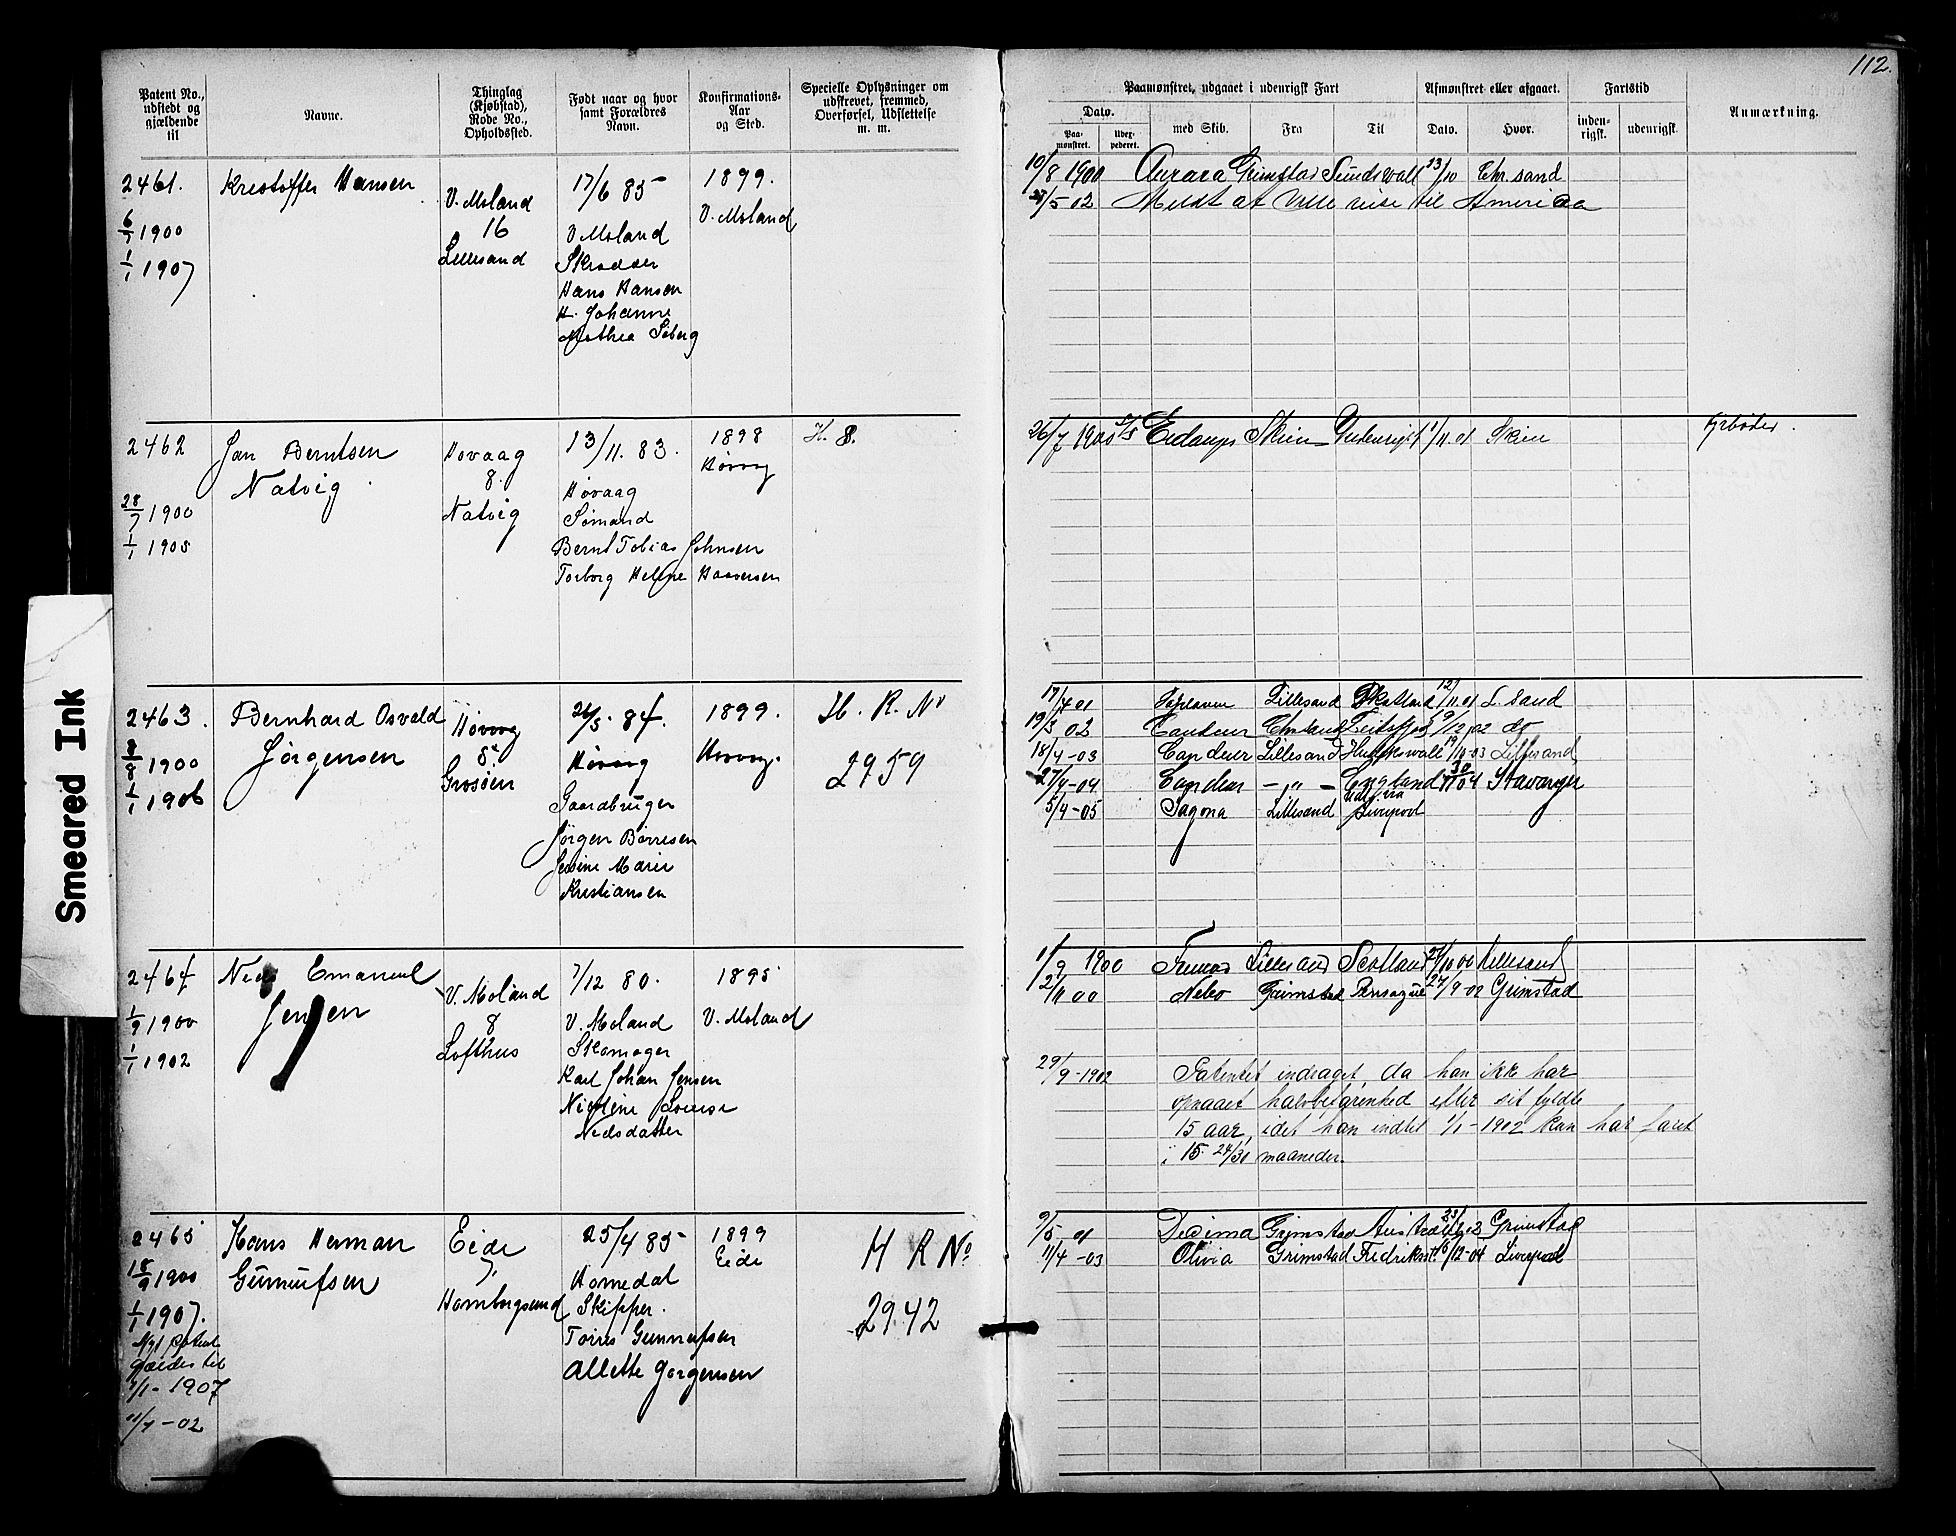 112.
Patent No., udstedt og gjældende til
Navne.
Thinglag (Kjøbstad), Rode No., Opholdssted.
Født naar og hvor samt Forældres Navn.
Konfirmations-Aar og Sted.
Specielle Oplysninger om udskrevet, fremmed, Overførsel, Udslettelse m. m.
Paamønstret, udgaaet i udenrigsk Fart
Dato.
Paa-mønstret.
Uder-pederet.
med Skib.
Fra
Til
Afmønstret eller afgaaet.
Dato.
Hvor.
Fartstid
inden-rigsk.
udenrigsk.
Anmærkning.
2461.
6/7 1900
1/1 1907
Kristoffer Hansen
V. Moland
16
Lillesand
17/6 85
V. Moland
Skrædder
Hans Hansen
H. Johanne
Mathea Soberg
1899.
V. Moland
10/8 1900 Aurora Grimstad Sundswall 13/10 Chr.sand
27/5 02 Meldt at ville reise til Amerika
2462
28/7 1900
1/1 1905
Jan Berntsen
Natvig
Hovaag
8.
Natvig
13/11. 83.
Høvaag
Sømand
Bernt Tobias Johnsen
Torborg Helene Haaversen
1898
Høvaag
H. 8.
26/7 1900 D/S Eidanger Skien Udenrigsk 1/11.01 Skien
Fyrbøder.
2463.
8/8 1900
1/1 1906
Bernhard Osvald
Jørgensen
Høvaag
8.
Grosøen
26/5. 84.
Høvaag
Gaardbruger
Jørgen Børresen
Jessine Marie
Kristiansen
1899.
Høvaag.
H. R. No
2959
17/4 01 Lillesand Skotland 12/11.01 L.sand
19/3 02 Candeur 9/12 02 do
18/4-03 Candeur Lillesand Hudikswall 19/10-03 Lillesand
27/4-04 Candeur — „ — England 30/11 04 Stavanger
5/4-05 Sagona Lillesand Liverpool
2464.
1/9 1900
1/1 1902
Niels Emanuel
Jensen
V. Moland
8
Lofthus
7/12 80.
V. Moland
Skomager
Karl Johan Jensen
Nicoline Lovise
Nielsdatter
1895
V. Moland
1/9 1900 Fremad Lillesand Scotland 21/10 00 Lillesand
12/11 00 Nebo Grimstad Pensacola 27/9-02 Grimstad
29/9-1902 Patentet inddraget, da han ikke har
opnaaet halvbefarenhed efter sit fyldte
15 aar, idet han indtil 1/1-1902 kun har faret
i 15 24/30 maaneder.
2465
18/9 1900
1/1 1907.
Nyt patent
gælder til
1/1-1907
11/7-02
Hans Herman
Gunnufsen
Eide
7.
Homborgsund
25/4 85
Homedal
Skipper.
Tørres Gunnufsen
Allette Jørgensen
1899
Eide
H R No.
2942
9/5 01 Decima Grimstad 23/ Grimstad
11/4-03 Olivia Grimstad Fredrikst. 16/12-04 Liverpool
Smeared Ink